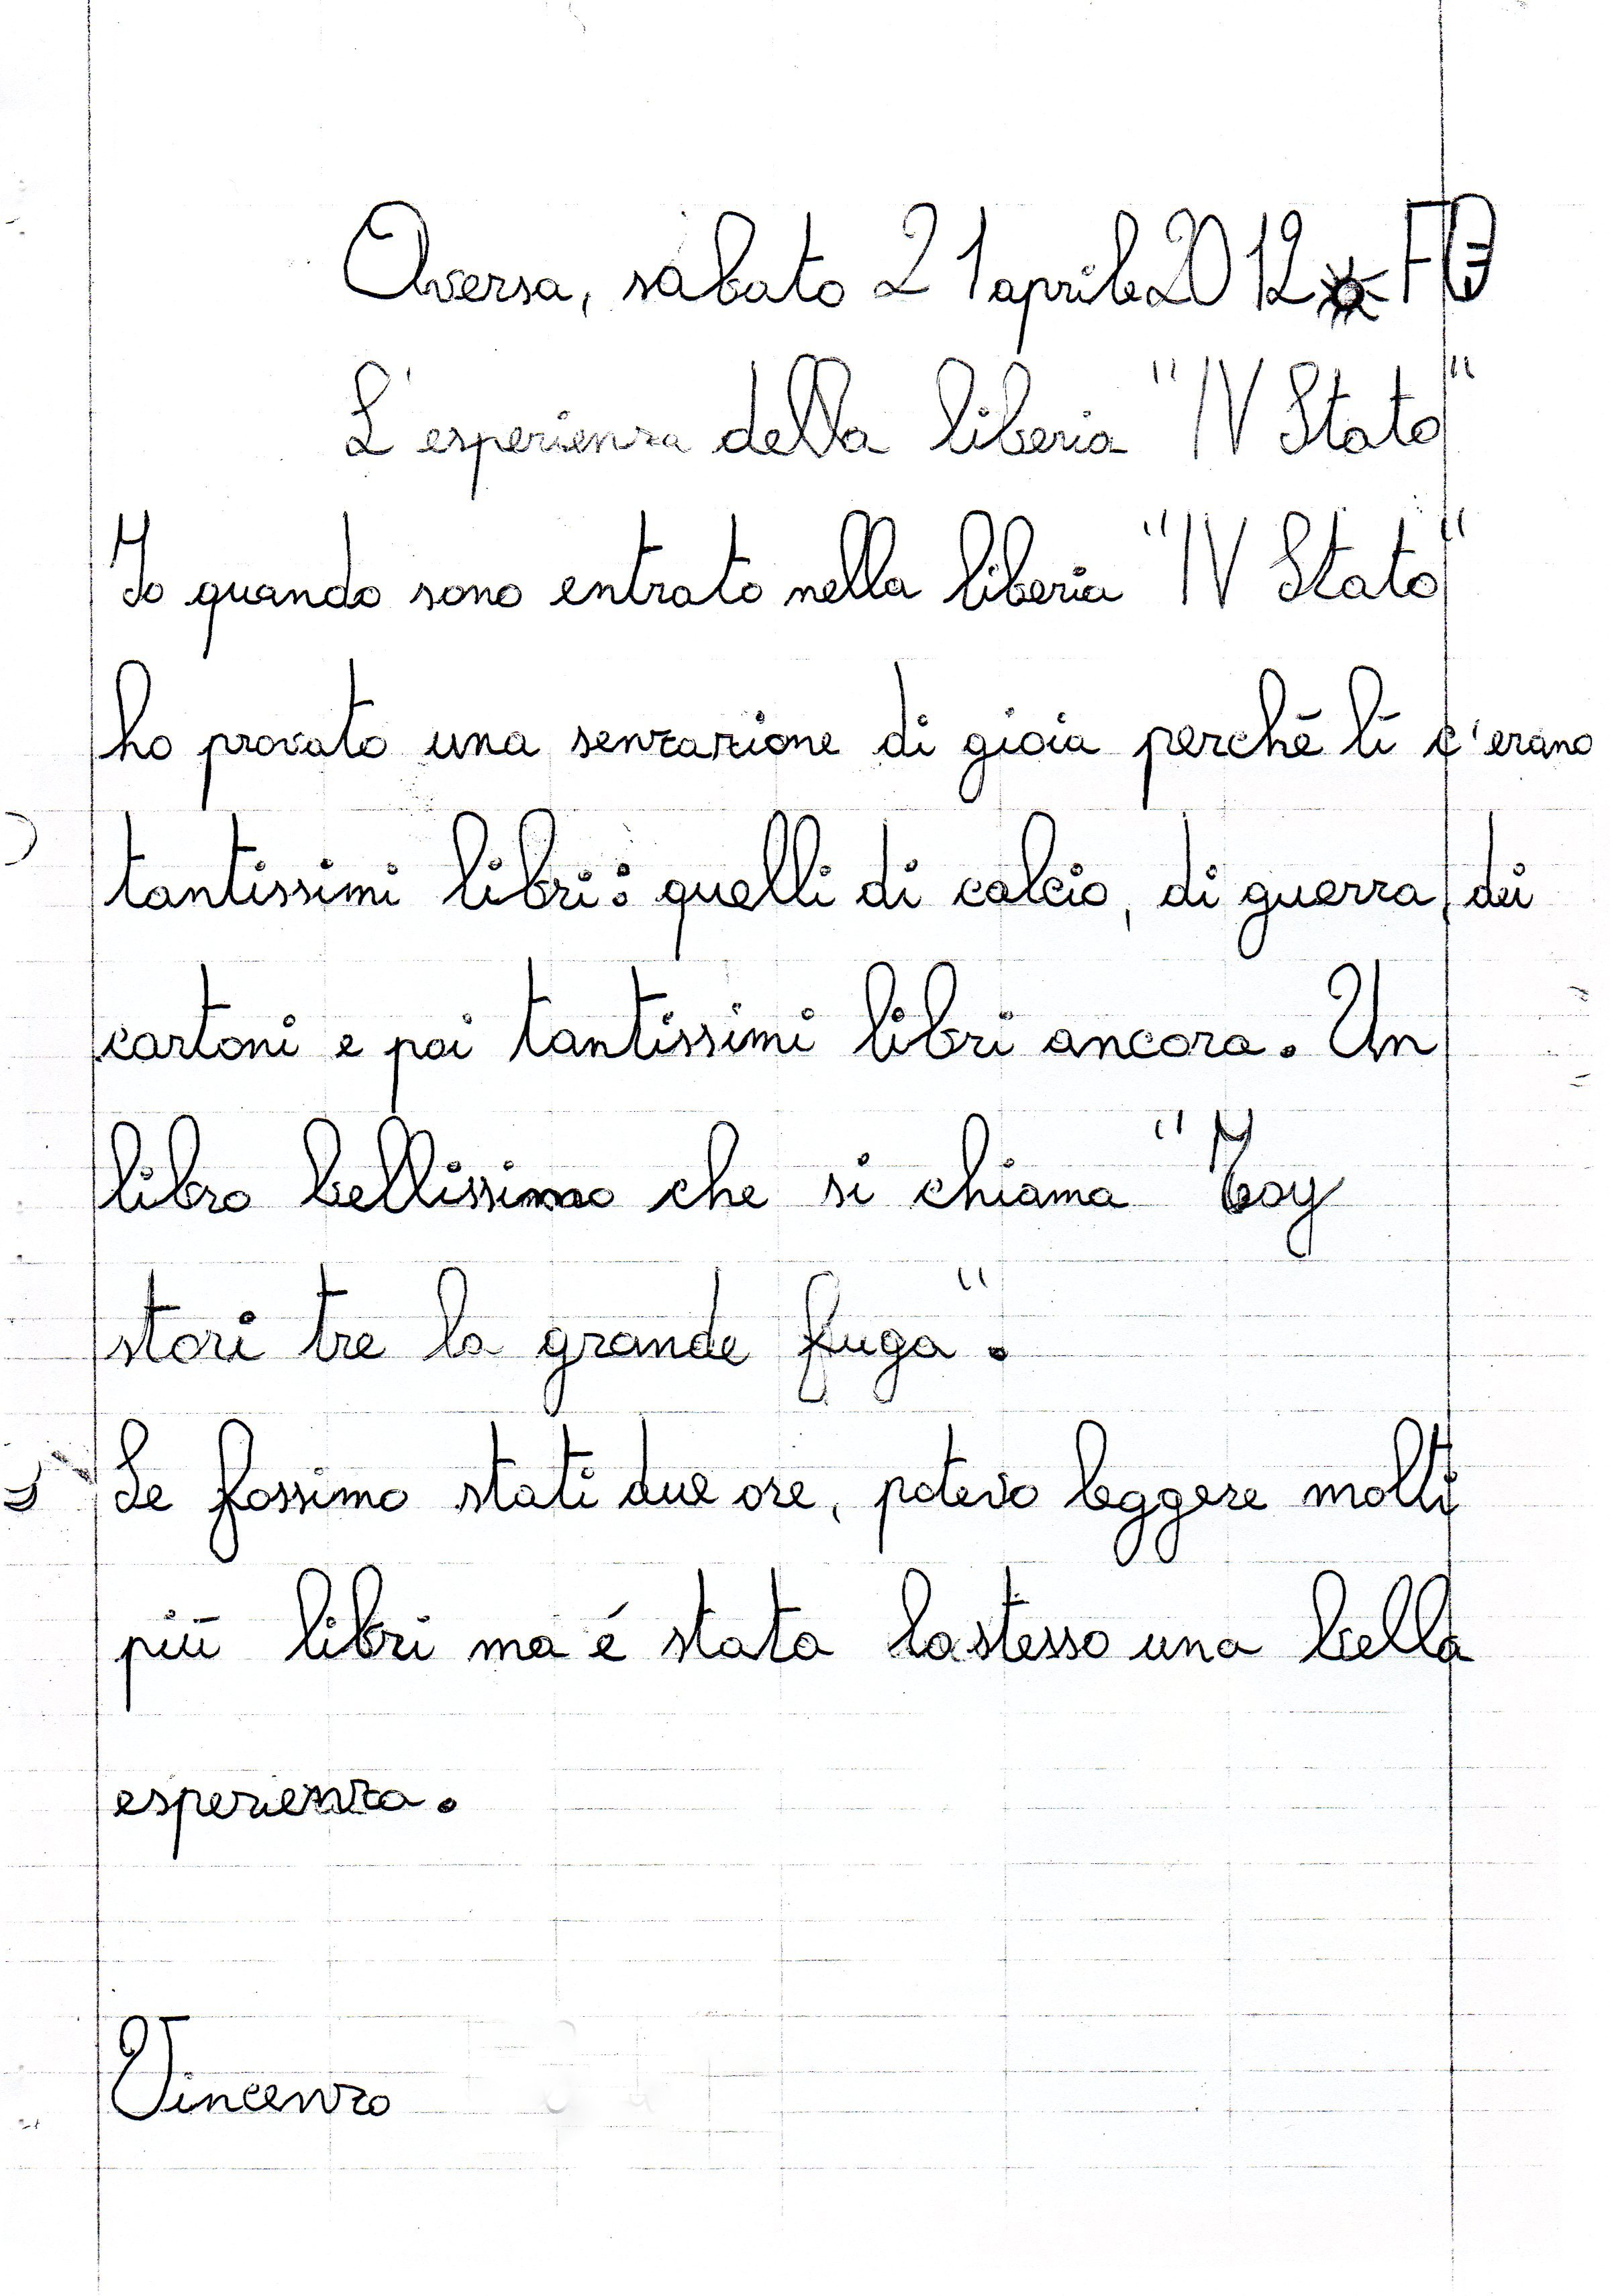 Aversa, sabato 21 aprile 2012
L'esperienza della liberia "IV Stato"
Io quando sono entrato nella liberia "IV Stato"
ho provato una senzazione di gioia perchē lī c'erano
tantissimi libri: quelli di calcio, di guerra, dei
cartoni e poi tantissimi libri ancora. Un
libro bellissimo che si chiama "Toy
stori tre la grande fuga".
Se fossimo stati due ore, potevo leggere molti
piū libri ma é stata lostesso una bella
esperienza.
Vincenzo